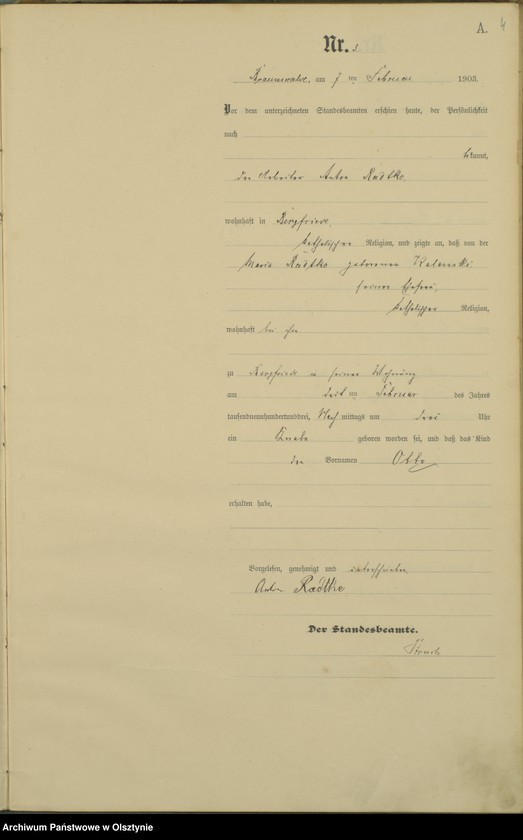 A. 4
Nr. 3.
Braunswalde, am 7 ten Februar 1903.
Vor dem unterzeichneten Standesbeamten erschien heute, der Persönlichkeit
nach
bekannt,
der Arbeiter Anton Radtke
wohnhaft in Bergfriede,
katholischer Religion, und zeigte an, daß von der
Maria Radtke geborenen
seiner Ehefrau,
katholischer Religion,
wohnhaft bei ihm
zu Bergfriede in seiner Wohnung
am ten Februar des Jahres
tausendneunhundertunddrei, Nachmittags um drei Uhr
ein Knabe geboren worden sei, und daß das Kind
den Vornamen Otto
erhalten habe,
Vorgelesen, genehmigt und unterschrieben
Anton Radtke
Der Standesbeamte.
Archiwum Państwowe w Olsztynie